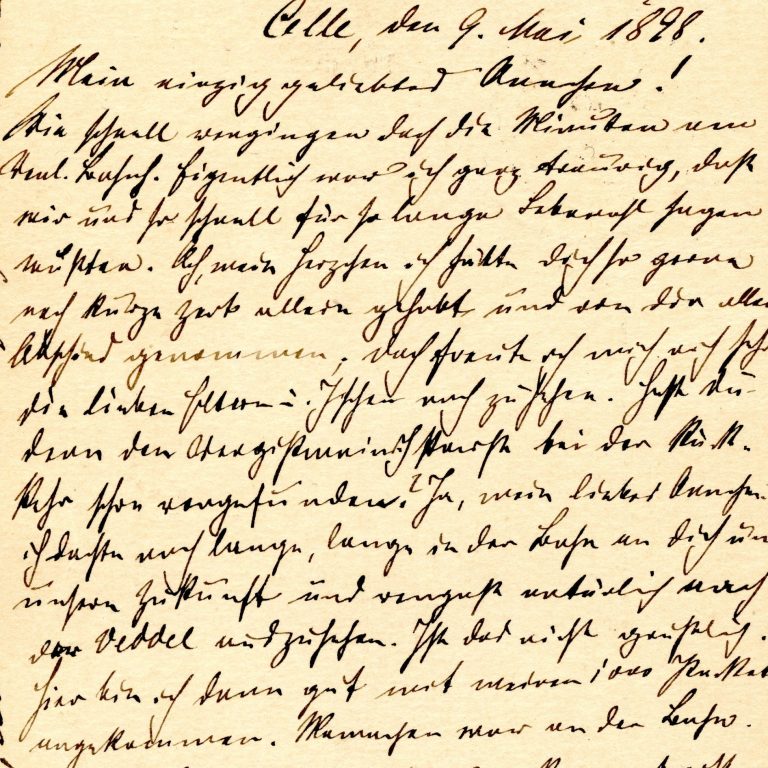 Celle, den 9. Mai 1898.
Mein einzig geliebtes Annchen!
Wie schnell vergingen doch die Minuten am
Venl. Bahnh. Eigentlich war ich ganz traurig, daß
wir uns so schnell für so lange Lebewohl sagen
mußten. Ach, mein Herzchen ich hätte dich so gerne
noch kurze Zeit allein gehabt und von dir allein
Abschied genommen, doch freute ich mich auch sehr
die lieben Eltern u. noch zu sehen. Hast du
denn den Vergißmeinnicht bei der Rück-
kehr schon vorgefunden? Ja, mein liebes Annchen
ich dachte noch lange, lange in der Bahn an dich und
unsere Zukunft und vergaß natürlich nach
der Veddel auszusehen. Ist das nicht greußlich.
Hier bin ich dann gut mit meinen 1000 Packeten
angekommen. Mamachen war an der Bahn.